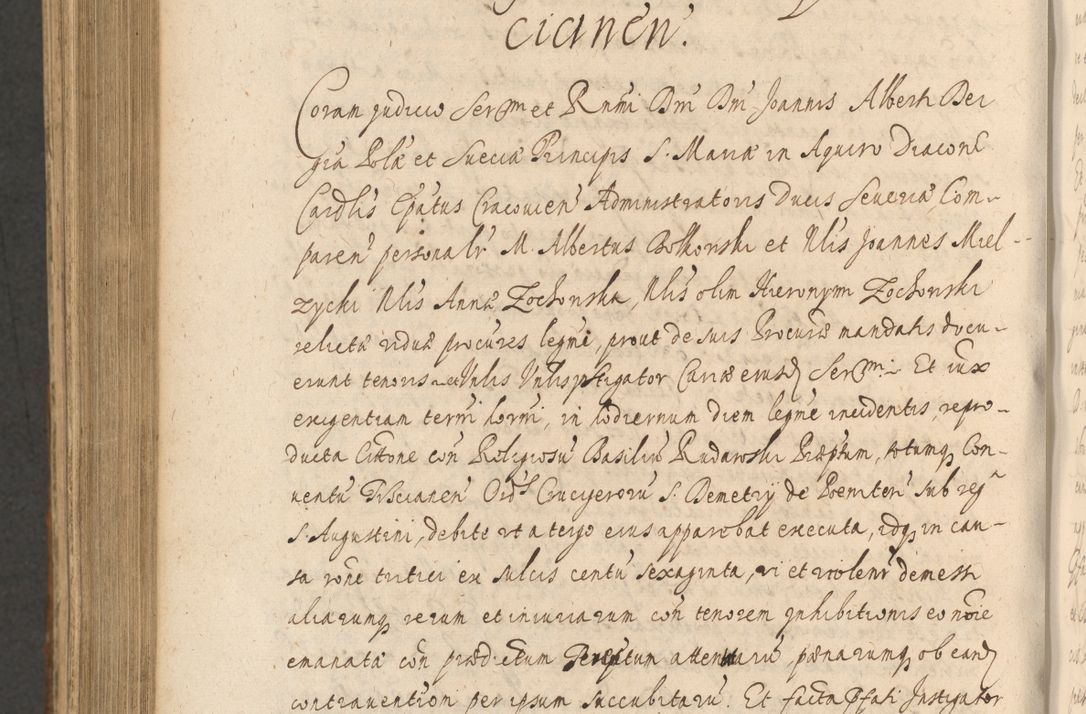 cianen̄.
Coram judicio Serm̄ et Rn̄mi Dn̄i Dn̄i Joannis Alberti Dei
gr̄a Polæ et Sueciæ Principis S. Mariæ in Aquiro Diaconi
Cardlis Ep̄atus Cracovien̄ Administratoris Ducis Severiæ, Com-
paren̄ personalr̄ M. Albertus Bolkonski et Nlis Joannes Miel-
zycki Nlis Annæ Zochonska, Nlis olim Hieronymi Zochonski
relictæ viduæ procures legmi, prout de suis Procuris mandatis docu-
erunt tenoris et Instigator Curiæ eiusd Serm̄i. Et iux
exigentiam termi hormi, in hodiernum diem legme incidentis, repro-
ducta Cittone con Religiosu Basiliu Rudawski Præptum, totumq Con-
ventu Trscianen Ordis Crucigeroru S. Demetrij de Poeniten sub reg
S. Augustini, debite ut a tergo eius apparebat executa, idq in cau-
sa rone tritici ex sulcis centu sexaginta, vi et violenr demessi
aliarumq rerum et iniuriarum con tenorem inhibitionis eo noie
emanatæ con prædictum Præptum attentaru, pænarumq ob eand
contravention per ipsum succubitaru. Et facta Pfati Instigator